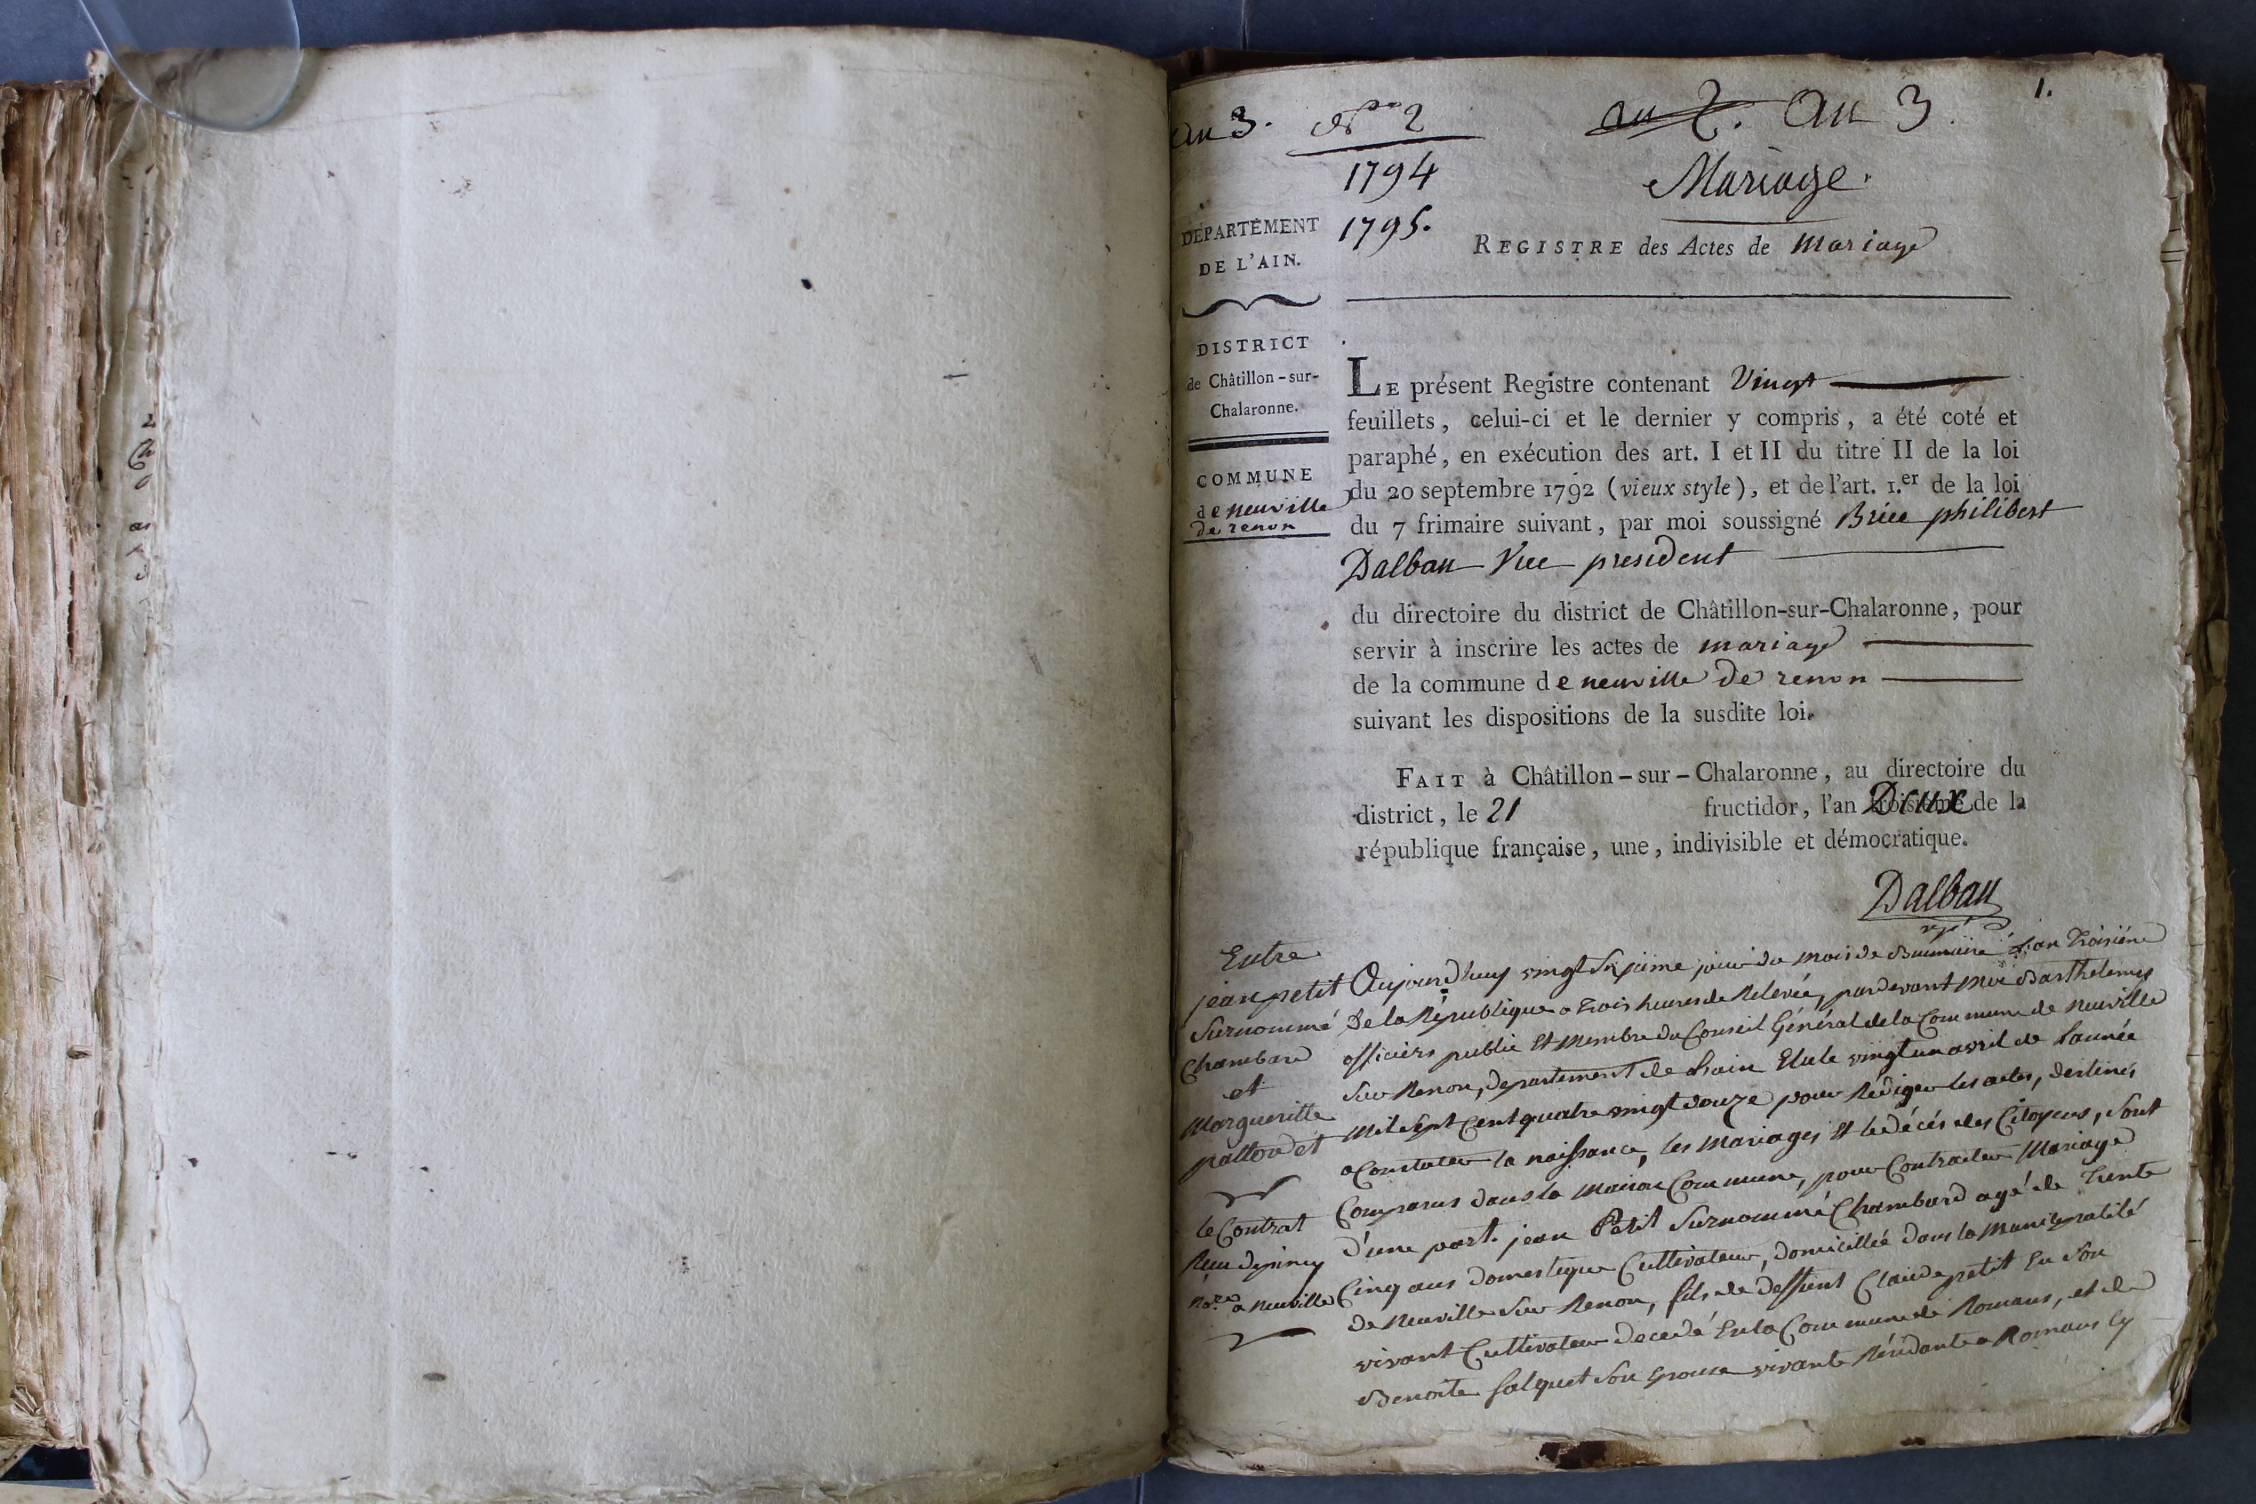 an 3.
N° 2
an 2. an 3.
1.
1794
1795.
Mariage.
DÉPARTEMENT
DE L'AIN.
REGISTRE des Actes de mariage
DISTRICT
de Châtillon-sur-
Chalaronne.
COMMUNE
de neuville
de renon
LE présent Registre contenant Vingt
feuillets, celui-ci et le dernier y compris, a été coté et
paraphé, en exécution des art. I et II du titre II de la loi
du 20 septembre 1792 (vieux style), et de l'art. 1.er de la loi
du 7 frimaire suivant, par moi soussigné Brice philibert
Dalban Vice president
du directoire du district de Châtillon-sur-Chalaronne, pour
servir à inscrire les actes de mariage
de la commune de neuville de renon
suivant les dispositions de la susdite loi.
FAIT à Châtillon-sur-Chalaronne, au directoire du
district, le 21 fructidor, l'an Deux de la
république française, une, indivisible et démocratique.
Dalban
Entre
jean petit
Surnommé
Chambard
et
Margueritte
le Contrat
Reçu
No.re a neuville
Aujourdhuy vingt Sixieme jour du mois de Brumaire L'an Troisiéme
De la République a Trois heures de Relevée, pardevant moi Barthelemy
officiers public Et Membre du Conseil Général de la Commune de Neuville
Sur Renon, departement de Lain Elu le vingt un avril de Lannée
Mil Sept Cent quatre vingt douze pour Rédiger les actes, destinés
a Constater la naissance, les Mariages Et le décés des Citoyens, Sont
Comparus dans la Maison Commune, pour Contracter Mariage
D'une part. jean Petit Surnommé Chambard agé de Trente
Cinq ans domestique Cultivateur, domicillié dans la Municipalité
de Neuville Sur Renon, fils de deffunt Claude petit En Son
vivant Cultivateur decedé En la Commune de Romans, et de
Benoite falquet Son Epouse vivante Résidante a Romans Cy